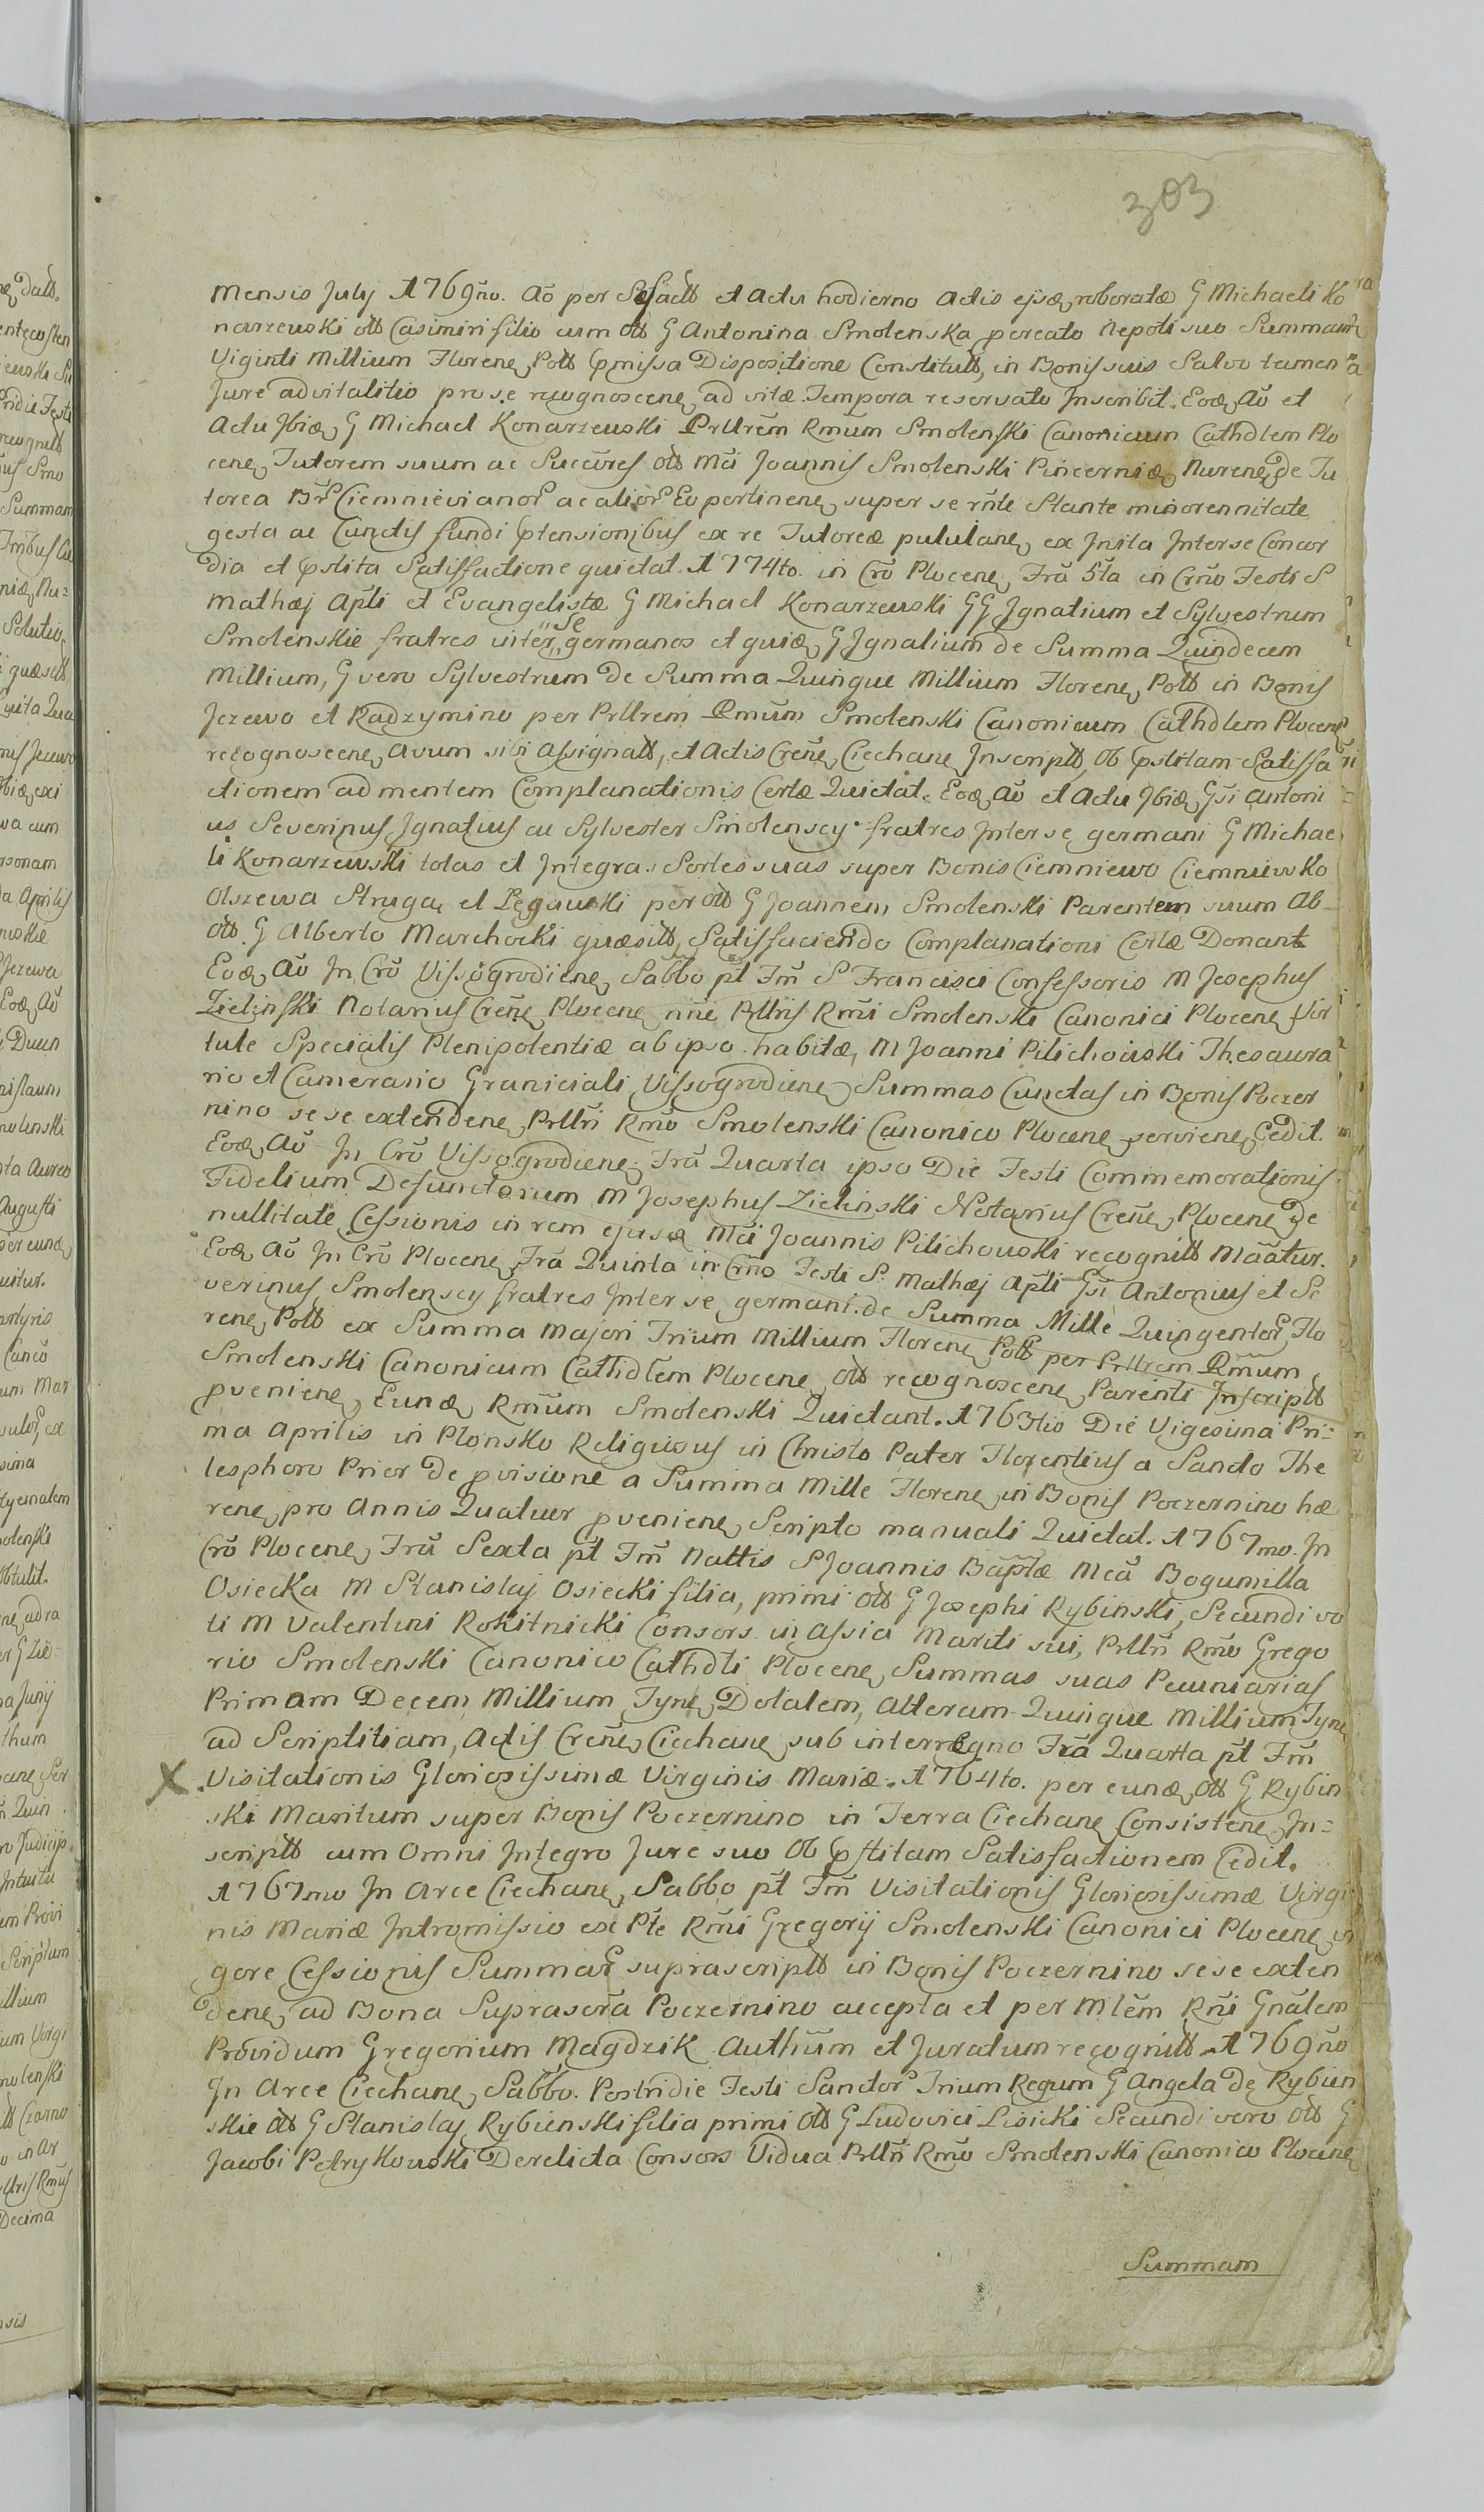 303
Mensis July 1769no. Ao per se fact et Actu hodierno Actis ejusq roboratæ G Michaeli Ko
narzewski olt Casimiri filio cum olt G Antonina Smolenska procreato Nepoti suo Summam
Viginti Millium Florene, Poll præmissa Dispositione Constitutt, in Bonis suis Salvo tamen
Jure advitalitio pro se recognoscene, ad vitæ Tempora reservato Inscribit. Eoq, Ao et
Actu Ibiq, G Michael Konarzewski Prllrem Rmum Smolenski Canonicum Cathdlem Plo
cene, Tutorem suum ac Succres olt Mci Joannis Smolenski Pincerniæ, Nurene, de Tu
torea Br Ciemnievianor ac alior Eo pertinene, super se rnte Stante minorennitate
gesta ac Cunctis fundi prætensionibus ex re Tutoreæ pululane, ex Inita Inter se Concor
dia et præstita Satisfactione quietat. 1774to. in Cro Plocene, Fra 5ta in Crno Festi S
Mathæj Apti et Evangelistæ G Michael Konarzewski GG Ignatium et Sylvestrum
Smolenskie fratres inter se germanos et quiq, G Ignatium de Summa Quindecem
Millium, G vero Sylvestrum de Summa Quinque Millium Florene, Poll in Bonis
Jezewo et Radzymino per Prllrem Rmum Smolenski Canonicum Cathdlem Plocene
recognoscene, avum sibi assignatt, et Actis Crene, Ciechane Inscriptt, Ob præstitam Satisfa
ctionem ad mentem Complanationis Certæ Quietat. Eoq, Ao et Actu Ibiq, Gsi Antoni
us Severinus, Ignatius ac Sylvester Smolenscy fratres Inter se, germani G Michae
li Konarzewski totas et Integras Sortes suas super Bonis Ciemniewo Ciemniewko
Olszewa Struga, et Lęgawki per olt G Joannem Smolenski Parentem suum Ab
olt G Alberto Marchocki quæsitt, Satisfaciendo Complanationi Certæ Donant
Eoq, Ao In Cro Vissogrodiene, Sabbo pt Fm S Francisci Confessoris M Josephus
Zielinski Notarius Crene, Plocene, nne Prllris Rmi Smolenski Canonici Plocene, Vir
tute Specialis Plenipotentiæ ab ipso habitæ, M Joanni Pilichowski Thesaura
rio et Camerario Graniciali Vissogrodiene, Summas Cunctas in Bonis Poczer
nino se se extendene, Prllri Rmo Smolenski Canonico Plocene serviene, Cedit.
Eoq, Ao In Cro Vissogrodiene, Fra Quarta ipso Die Festi Commemorationis
Fidelium Defunctorum M Josephus Zielinski Notarius Crene, Plocene, De
nullitate Cessionis in rem ejusq Mci Joannis Pilichowski recognitt Maatur.
Eoq, Ao In Cro Plocene, Fra Quinta in Crno Festi S. Mathæj Apti Gsi Antonius et Se
verinus Smolenscy fratres Inter se, germani. de Summa Mille Quingentor Flo
rene, Poll ex Summa Majori Trium Millium Florene, Poll per Prllrem Rmum
Smolenski Canonicum Cathdlem Plocene, olt recognoscene, Parenti Inscriptt
proveniene, Eunq, Rmum Smolenski Quietant. 1763tio Die Vigesima Pri-
ma Aprilis in Plonsko Religiosus in Christo Pater Florentius a Sancto The
lesphoro Prior de provisione a Summa Mille Florene, in Bonis Poczernino hæ
rene, pro Annis Quatuor proveniene, Scripto manuali Quietat. 1767mo. In
Cro Plocene, Fra Sexta pt Fm Nattis S Joannis Baptæ Mca Bogumilla
Osiecka M Stanislaj Osiecki filia, primi olt G Josephi Rybinski, Secundi vo
ti M Valentini Rokitnicki Consors in Assia Mariti sui, Prllri Rmo Grego
rio Smolenski Canonico Cathdli Plocene, Summas suas Pecuniarias
Primam Decem Millium Tyne, Dotalem, Alteram Quinque Millium Tyne
ad Scriptitiam, Actis Crene, Ciechane, sub interregno Fra Quarta pt Fm
X Visitationis Gloriosissimæ Virginis Mariæ. 1764to. per eunq, olt G Rybin
ski Maritum super Bonis Poczernino in Terra Ciechane, Consistene, In-
scriptt cum Omni Integro Jure suo Ob præstitam Satisfactionem Cedit.
1767mo In Arce Ciechane, Sabbo pt Fm Visitationis Gloriosissimæ Virgi
nis Mariæ Intromissio ex Pte Rmi Gregorij Smolenski Canonici Plocene, vi
gore Cessionis Summar suprascriptt in Bonis Poczernino sese exten
dene, ad Bona Suprascra Poczernino accepta et per Mlem Rni Gnalem
Providum Gregorium Magdzik Authum et Juratum recognitt 1769no
In Arce Ciechane, Sabbo. Postridie Festi Sanctor Trium Regum G Angela de Rybien
skie olt G Stanislaj Rybienski filia primi olt G Ludovici Lisicki Secundi vero olt G
Jacobi Petrykowski Derelicta Consors Vidua Prllri Rmo Smolenski Canonico Plocene
Summam